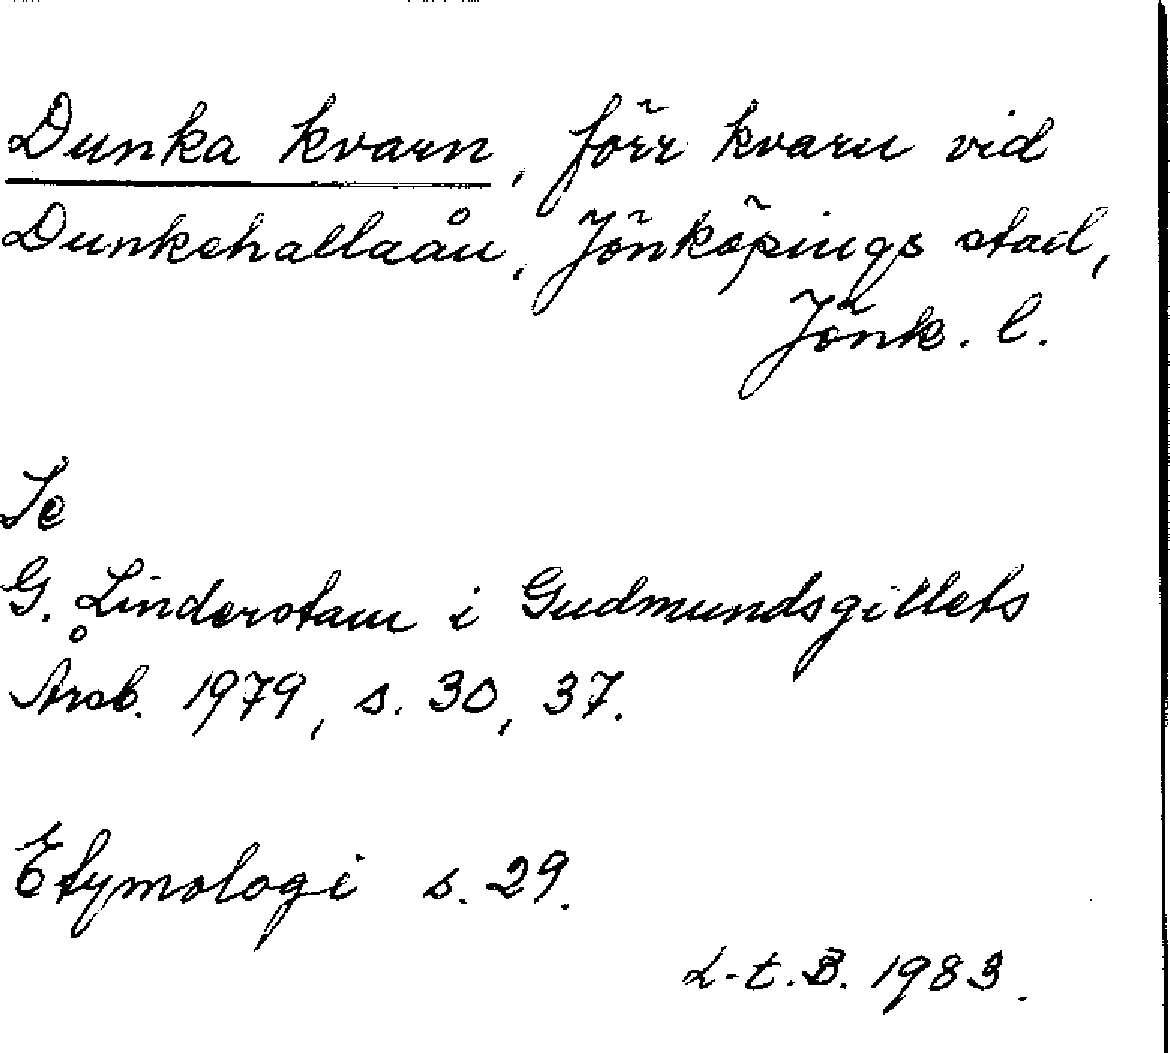 Dunka kvarn, förr kvarn vid
Dunkehallaån, Jönköpings stad,
Jönk. l.
Se
G. Linderstam i Gudmundsgillets
Årsb. 1979, s. 30, 37.
Etymologi s. 29.
L-t.B. 1983.